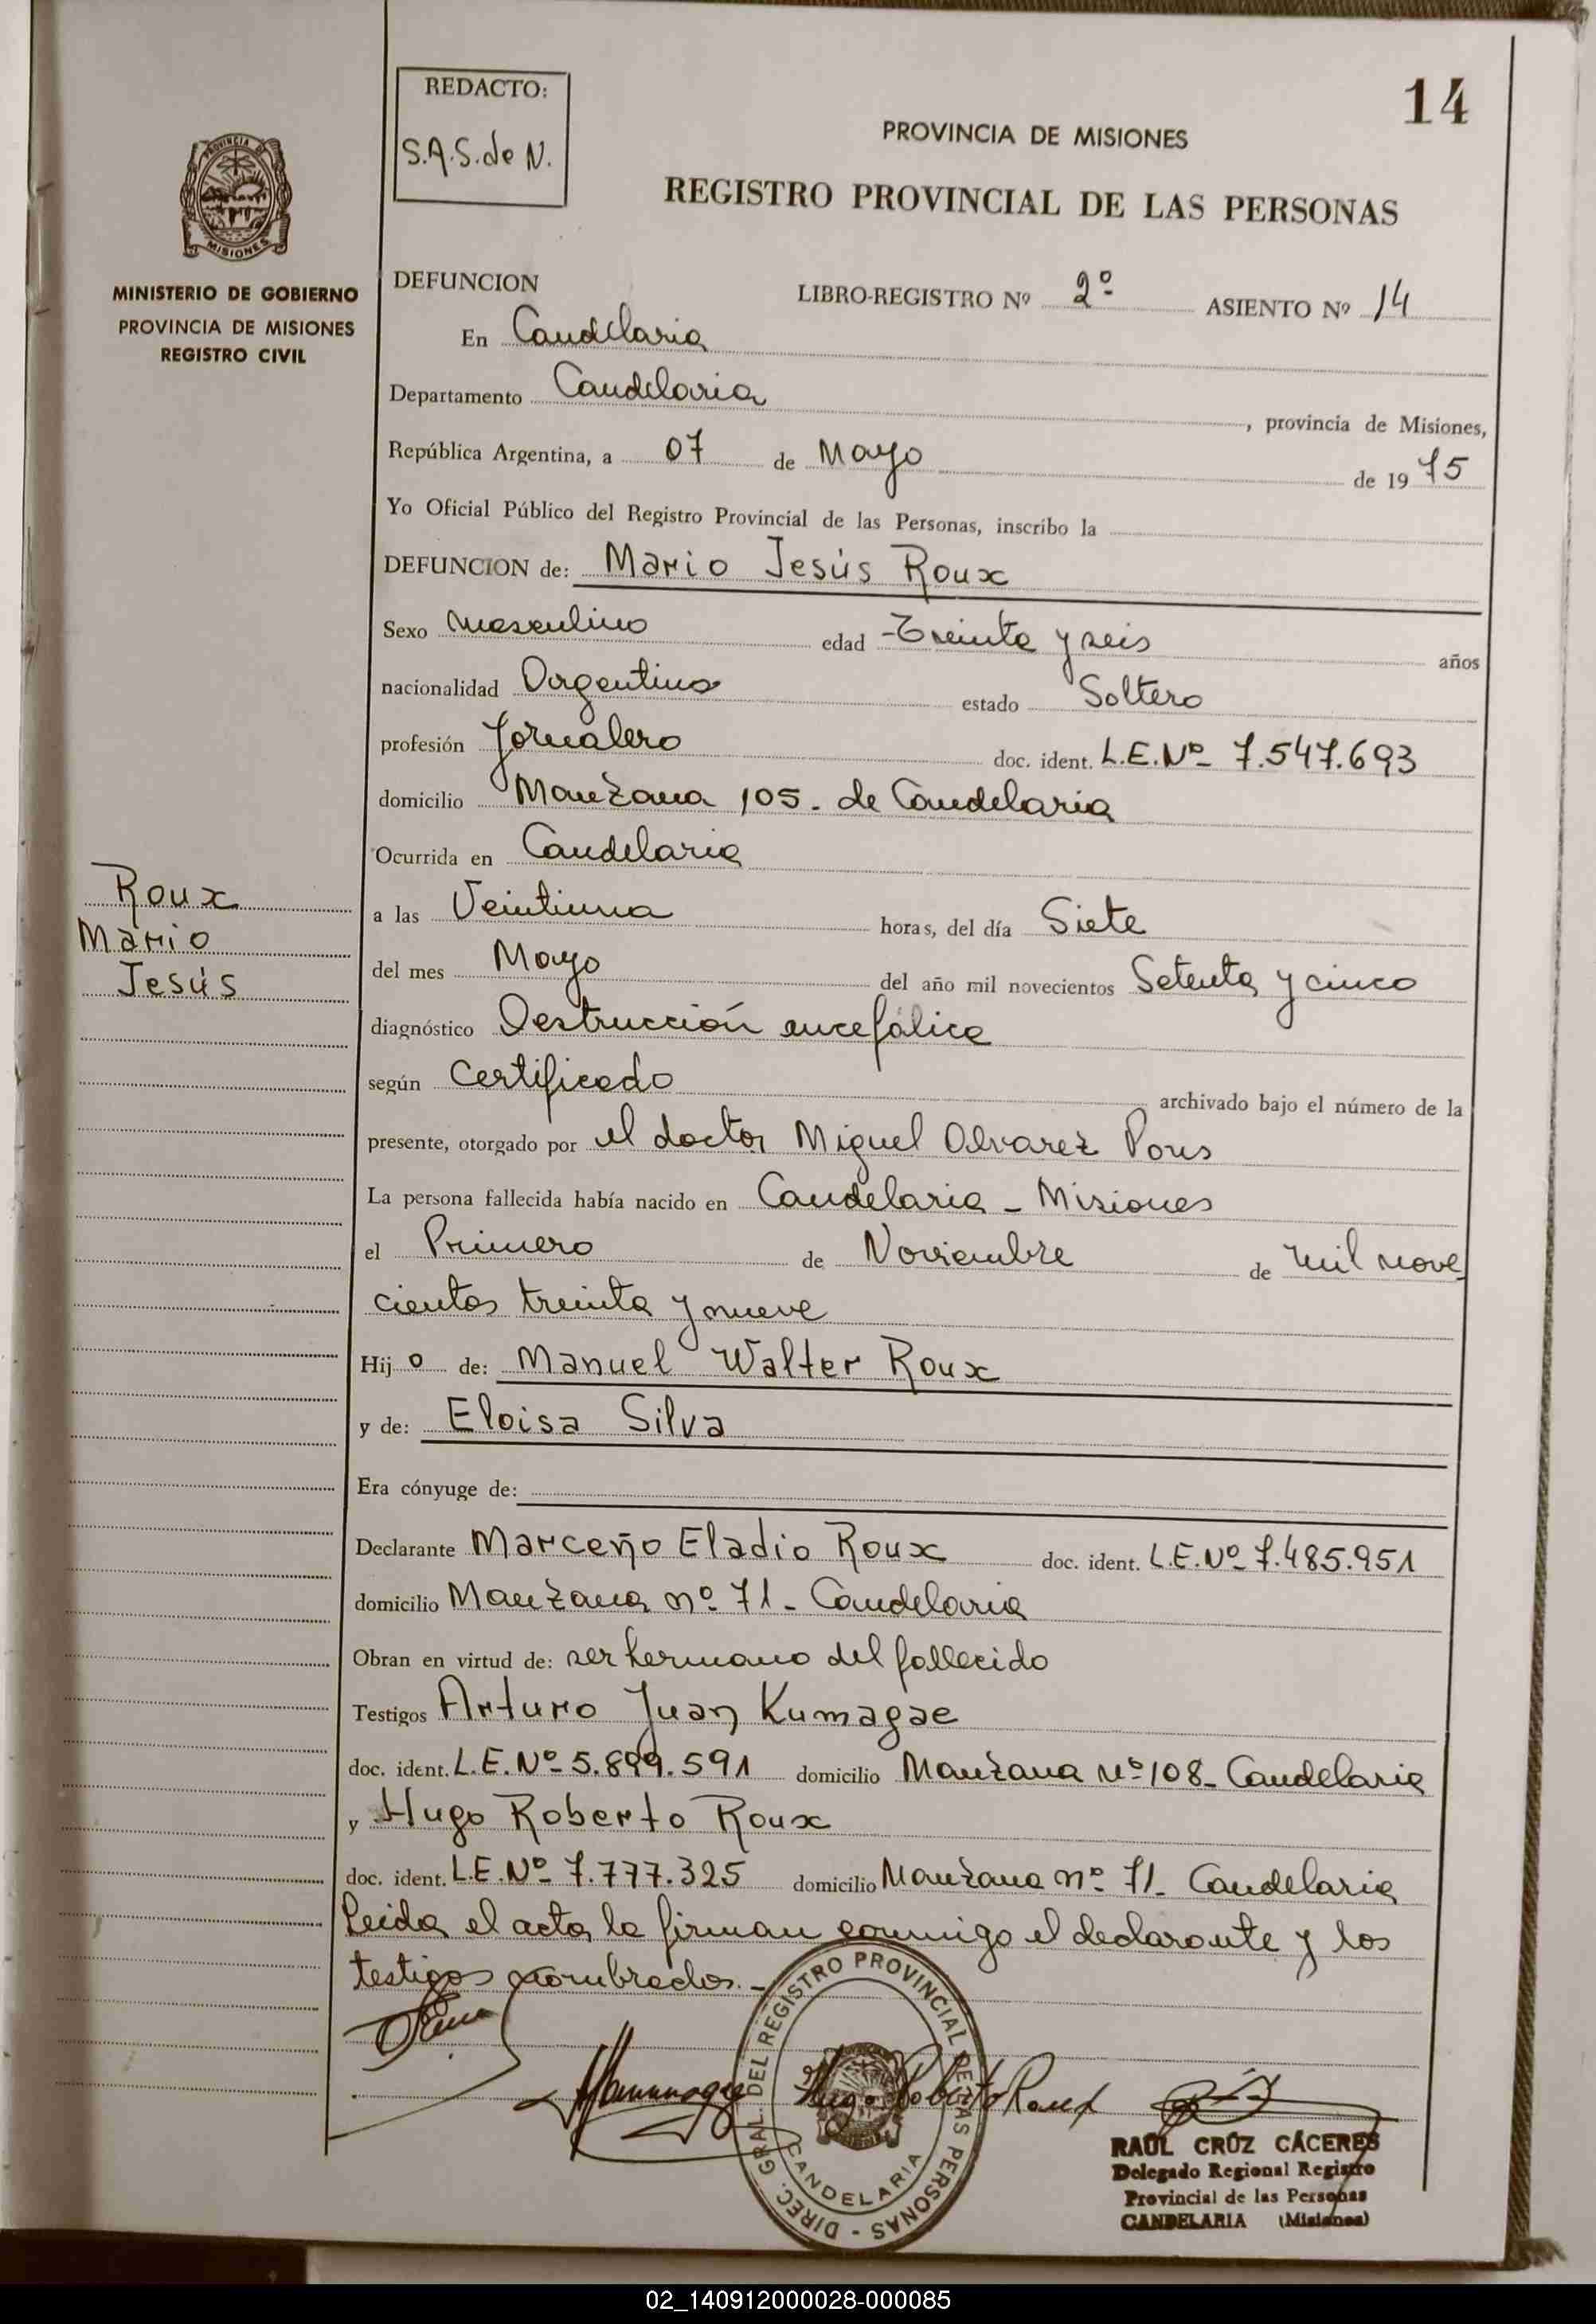 REDACTO:
S.A.S.de N.
14
PROVINCIA DE MISIONES
REGISTRO PROVINCIAL DE LAS PERSONAS
PROVINCIA DE
MISIONES
MINISTERIO DE GOBIERNO
PROVINCIA DE MISIONES
REGISTRO CIVIL
DEFUNCION
LIBRO-REGISTRO Nº 2º ASIENTO Nº 14
En Candelaria
Departamento Candelaria, provincia de Misiones,
República Argentina, a 07 de Mayo de 1975
Yo Oficial Público del Registro Provincial de las Personas, inscribo la
DEFUNCION de: Mario Jesús Roux
Sexo Masculino edad Treinta y seis años
nacionalidad Argentino estado Soltero
profesión Jornalero doc. ident. L.E.Nº 7.547.693
domicilio Manzana 105. de Candelaria
Ocurrida en Candelaria
Roux
Mario
Jesús
a las Veintiuna horas, del día Siete
del mes Mayo del año mil novecientos Setenta y cinco
diagnóstico Destrucción encefálica
según Certificado archivado bajo el número de la
presente, otorgado por el doctor Miguel Alvarez Pons
La persona fallecida había nacido en Candelaria - Misiones
el Primero de Noviembre de mil nove
cientos treinta y nueve
Hijo de: Manuel Walter Roux
y de: Eloisa Silva
Era cónyuge de:
Declarante Marceño Eladio Roux doc. ident. L.E.Nº 7.485.951
domicilio Manzana nº 71 - Candelaria
Obran en virtud de: ser hermano del fallecido
Testigos Arturo Juan Kumagae
doc. ident. L.E.Nº 5.899.591 domicilio Manzana Nº 108 - Candelaria
y Hugo Roberto Roux
doc. ident. L.E.Nº 7.777.325 domicilio Manzana nº 71 - Candelaria
Leida el acta la firman conmigo el declarante y los
testigos nombrados.-
Hugo Roberto Roux
DIREC. GRAL. DEL REGISTRO PROVINCIAL DE LAS PERSONAS -
CANDELARIA
RAUL CRUZ CÁCERES
Delegado Regional Registro
Provincial de las Personas
CANDELARIA (Misiones)
02_140912000028-000085